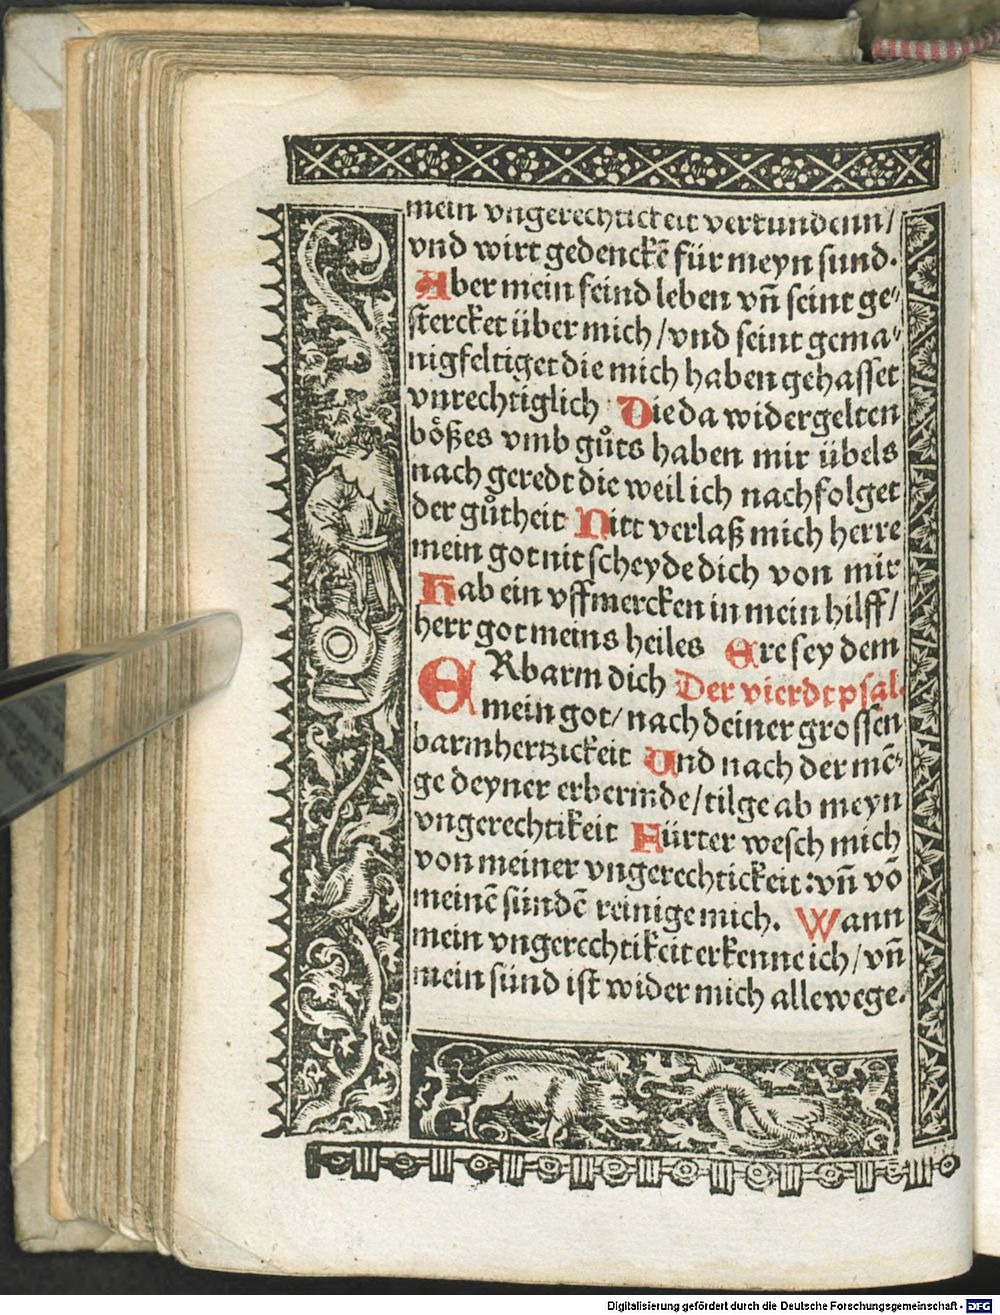 mein vngerechtickeit verkundenn/
vnd wirt gedenckẽ für meyn sund.
Aber mein feind leben vñ seint ge⸗
stercket über mich / vnd seint gema⸗
nigfeltiget die mich haben gehasset
vnrechtiglich Die da widergelten
bößes vmb gůts haben mir übels
nach geredt die weil ich nachfolget
der gůtheit Nitt verlaß mich herre
mein got nit scheyde dich von mir
Hab ein vffmercken in mein hilff/
herr got meins heiles Ere sey dem
ERbarm dich Der vierdt psal.
mein got/ nach deiner grossen
barmhertzickeit Und nach der mẽ⸗
ge deyner erbermde/tilge ab meyn
vngerechtikeit Fürter wesch mich
von meiner vngerechtickeit: vñ võ
meinẽ sündẽ reinige mich. Wann
mein vngerechtikeit erkenne ich / vñ
mein sünd ist wider mich allewege.
Digitalisierung gefördert durch die Deutsche Forschungsgemeinschaft - DFG